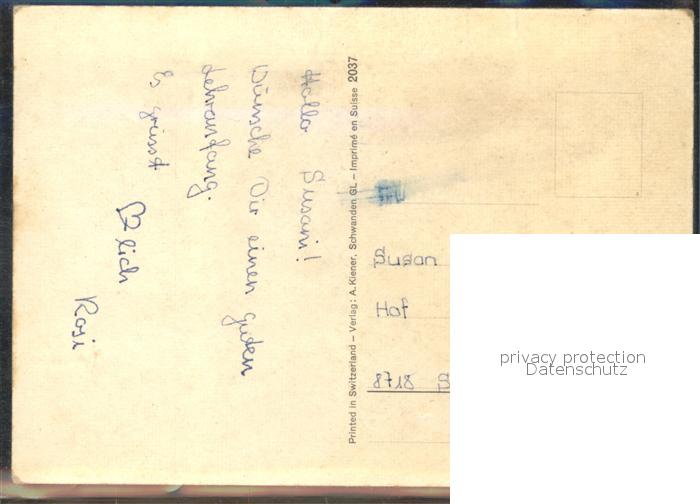 Hallo Susani!
Wünsche Dir einen guten
Lehranfang.
Es grüsst
lich
Rosi
Printed in Switzerland – Verlag: A. Kiener, Schwanden GL – Imprimé en Suisse 2037
Susan
Hof
8718 S
privacy protection
Datenschutz